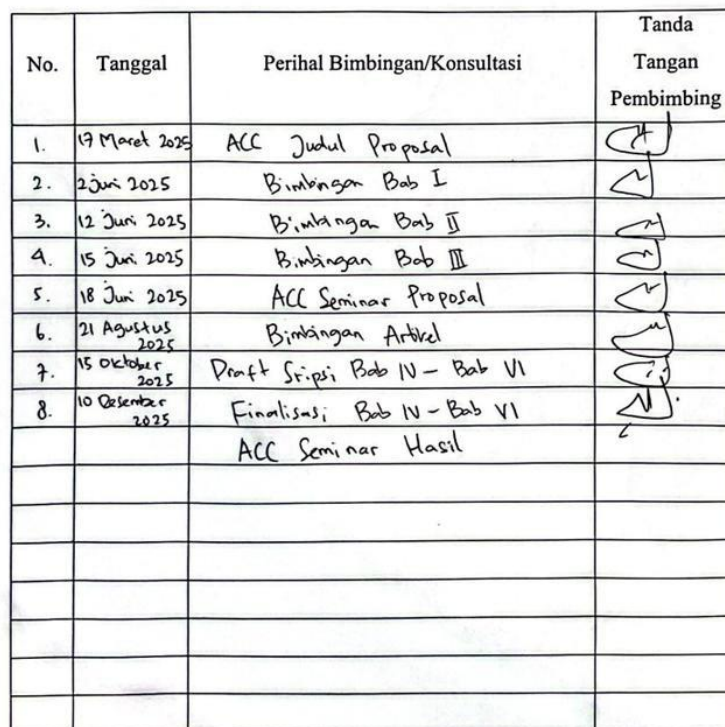 No. Tanggal Perihal Bimbingan/Konsultasi Tanda Tangan Pembimbing
1. 17 Maret 2025 ACC Judul Proposal
2. 2 Juni 2025 Bimbingan Bab I
3. 12 Juni 2025 Bimbingan Bab II
4. 15 Juni 2025 Bimbingan Bab III
5. 18 Juni 2025 ACC Seminar Proposal
6. 21 Agustus 2025 Bimbingan Artikel
7. 15 Oktober 2025 Draft Sripsi Bab IV - Bab VI
8. 10 Desember 2025 Finalisasi Bab IV - Bab VI
ACC Seminar Hasil